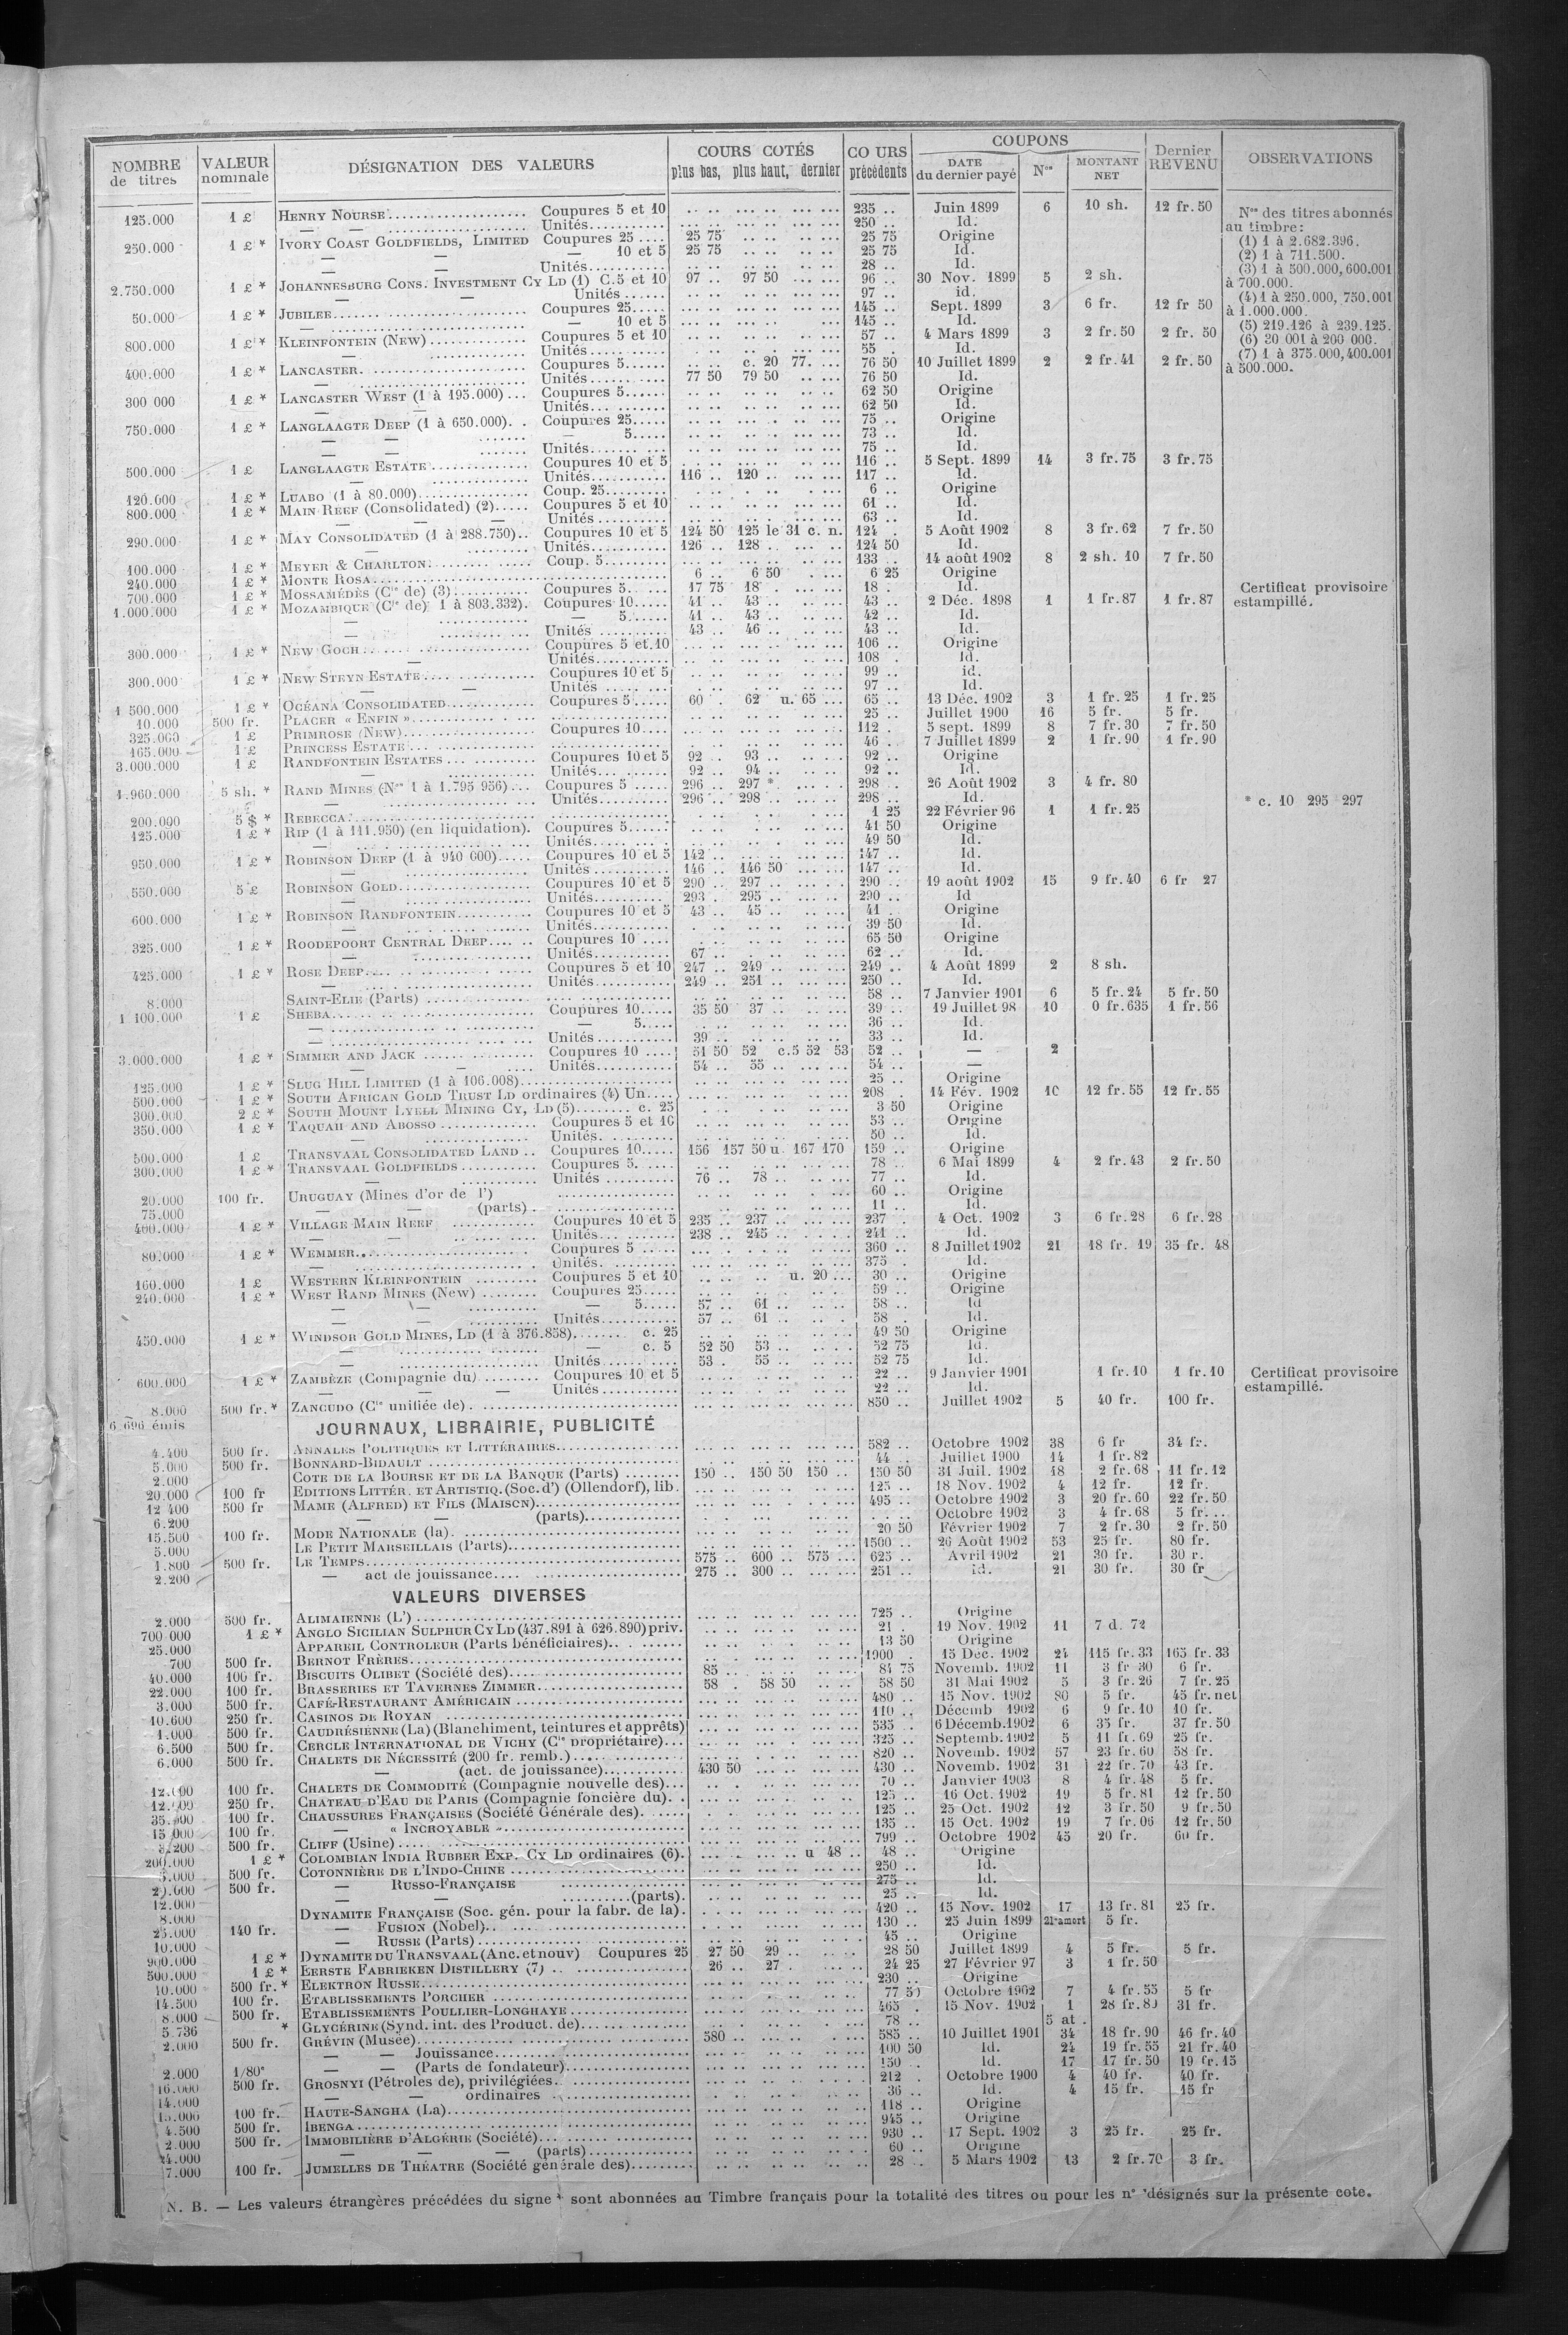 NOMBRE de titres | VALEUR nominale | DÉSIGNATION DES VALEURS | COURS COTÉS plus bas, plus haut, dernier | COURS précédents | COUPONS DATE du dernier payé | Nos | MONTANT NET | Dernier REVENU | OBSERVATIONS
125.000 1 £ HENRY NOURSE Coupures 5 et 10 235 .. Juin 1899 6 10 sh. 12 fr. 50
— — Unités 250 .. Id.
250.000 1 £ * IVORY COAST GOLDFIELDS, LIMITED Coupures 25 25 75 25 75 Origine
— — — 10 et 5 25 75 25 75 Id.
Unités 28 .. Id.
2.750.000 1 £ * JOHANNESBURG CONS. INVESTMENT CY LD (1) C. 5 et 10 97 .. 97 50 96 .. 30 Nov. 1899 5 2 sh.
— — Unités 97 .. id.
50.000 1 £ * JUBILEE Coupures 25 145 .. Sept. 1899 3 6 fr. 12 fr 50
— — 10 et 5 145 .. Id.
800.000 1 £ * KLEINFONTEIN (NEW) Coupures 5 et 10 57 .. 4 Mars 1899 3 2 fr. 50 2 fr. 50
— Unités 55 . Id.
400.000 1 £ * LANCASTER Coupures 5 c. 20 77. 76 50 10 Juillet 1899 2 2 fr. 41 2 fr. 50
— Unités 77 50 79 50 76 50 Id.
300 000 1 £ * LANCASTER WEST (1 à 195.000) Coupures 5 62 50 Origine
— — Unités 62 50 Id.
750.000 1 £ * LANGLAAGTE DEEP (1 à 650.000) Coupures 25 75 .. Origine
— — — 5 73 .. Id.
— — Unités 75 .. Id.
500.000 1 £ LANGLAAGTE ESTATE Coupures 10 et 5 116 .. 5 Sept. 1899 14 3 fr. 75 3 fr. 75
— Unités 116 .. 120 117 .. Id.
120.600 1 £ * LUABO (1 à 80.000) Coup. 25 6 .. Origine
800.000 1 £ * MAIN REEF (Consolidated) (2) Coupures 5 et 10 61 .. Id.
— — — Unités 63 .. Id.
290.000 1 £ * MAY CONSOLIDATED (1 à 288.750) Coupures 10 et 5 124 50 125 le 31 c. n. 124 . 5 Août 1902 8 3 fr. 62 7 fr. 50
— Unités 126 .. 128 .. 124 50 Id.
100.000 1 £ * MEYER & CHARLTON Coup. 5 133 .. 14 août 1902 8 2 sh. 10 7 fr. 50
240.000 1 £ * MONTE ROSA 6 .. 6 50 6 25 Origine
700.000 1 £ * MOSSAMÉDÈS (Cie de) (3) Coupures 5 17 75 18 18 . Id.
1.000.000 1 £ * MOZAMBIQUE (Cie de) 1 à 803.332). Coupures 10 41 .. 43 .. 43 .. 2 Déc. 1898 1 1 fr. 87 1 fr. 87
— — 5 41 .. 43 .. 42 .. Id.
— Unités 43 .. 46 .. 43 .. Id.
300.000 1 £ * NEW GOCH Coupures 5 et 10 106 .. Origine
— Unités 108 . Id.
300.000 1 £ * NEW STEYN ESTATE Coupures 10 et 5 99 .. id.
— — Unités 97 .. Id.
1 500.000 1 £ * OCÉANA CONSOLIDATED Coupures 5 60 . 62 u. 65 65 .. 13 Déc. 1902 3 1 fr. 25 1 fr. 25
10.000 500 fr. PLACER « ENFIN » 25 .. Juillet 1900 16 5 fr. 5 fr.
325.000 1 £ PRIMROSE (NEW) Coupures 10 112 . 5 sept. 1899 8 7 fr. 30 7 fr. 50
165.000 1 £ PRINCESS ESTATE 46 .. 7 Juillet 1899 2 1 fr. 90 1 fr. 90
3.000.000 1 £ RANDFONTEIN ESTATES Coupures 10 et 5 92 .. 93 .. 92 .. Origine
— Unités 92 .. 94 .. 92 .. Id.
1.960.000 5 sh. * RAND MINES (Nos 1 à 1.795 956) Coupures 5 296 .. 297 * 298 . 26 Août 1902 3 4 fr. 80
— — Unités 296 .. 298 .. 298 .. Id.
200.000 5 $ * REBECCA 1 25 22 Février 96 1 1 fr. 25
125.000 1 £ * RIP (1 à 111.950) (en liquidation). Coupures 5 41 50 Origine
— Unités 49 50 Id.
950.000 1 £ * ROBINSON DEEP (1 à 940 000) Coupures 10 et 5 142 .. 147 .. Id.
— Unités 146 .. 146 50 147 .. Id.
550.000 5 £ ROBINSON GOLD Coupures 10 et 5 290 .. 297 .. 290 .. 19 août 1902 15 9 fr. 40 6 fr 27
— Unités 293 . 295 .. 290 .. Id
600.000 1 £ * ROBINSON RANDFONTEIN Coupures 10 et 5 43 .. 45 .. 41 . Origine
— Unités 39 50 Id.
325.000 1 £ * ROODEPOORT CENTRAL DEEP Coupures 10 65 50 Origine
— Unités 67 .. 62 .. Id.
425.000 1 £ * ROSE DEEP Coupures 5 et 10 247 .. 249 .. 249 .. 4 Août 1899 2 8 sh.
— Unités 249 .. 251 .. 250 .. Id.
8.000 SAINT-ELIE (Parts) 58 .. 7 Janvier 1901 6 5 fr. 24 5 fr. 50
1 100.000 1 £ SHEBA Coupures 10 35 50 37 .. 39 .. 19 Juillet 98 10 0 fr. 635 1 fr. 56
— — 5 36 .. Id.
— Unités 39 .. 33 .. Id.
3.000.000 1 £ * SIMMER AND JACK Coupures 10 51 50 52 c. 5 52 53 52 .. — 2
— — Unités 54 .. 55 .. 54 .. —
125.000 1 £ * SLUG HILL LIMITED (1 à 106.008) 25 .. Origine
500.000 1 £ * SOUTH AFRICAN GOLD TRUST LD ordinaires (4) Un. 208 . 14 Fév. 1902 10 12 fr. 55 12 fr. 55
300.000 2 £ * SOUTH MOUNT LYELL MINING CY, LD (5) c. 25 3 50 Origine
350.000 1 £ * TAQUAH AND ABOSSO Coupures 5 et 10 53 .. Origine
— Unités. 50 .. Id.
500.000 1 £ TRANSVAAL CONSOLIDATED LAND .. Coupures 10 156 157 50 u. 167 170 159 .. Origine
300.000 1 £ * TRANSVAAL GOLDFIELDS Coupures 5 78 .. 6 Mai 1899 4 2 fr. 43 2 fr. 50
— Unités 76 .. 78 .. 77 .. Id.
20.000 100 fr. URUGUAY (Mines d'or de l') 60 .. Origine
75.000 — — (parts) 11 .. Id.
400.000 1 £ * VILLAGE MAIN REEF Coupures 10 et 5 235 .. 237 .. 237 . 4 Oct. 1902 3 6 fr. 28 6 fr. 28
— — Unités 238 .. 245 .. 241 .. Id.
80.000 1 £ * WEMMER Coupures 5 360 .. 8 Juillet 1902 21 18 fr. 19 35 fr. 48
— Unités 375 . Id.
160.000 1 £ WESTERN KLEINFONTEIN Coupures 5 et 10 u. 20 30 .. Origine
240.000 1 £ * WEST RAND MINES (New) Coupures 25 59 .. Origine
— — — 5 57 .. 61 .. 58 .. Id
— Unités 57 .. 61 .. 58 . Id.
450.000 1 £ * WINDSOR GOLD MINES, LD (1 à 376.858) c. 25 49 50 Origine
— — c. 5 52 50 53 .. 52 75 Id.
— Unités 53 . 55 .. 52 75 Id.
600.000 1 £ * ZAMBÈZE (Compagnie du) Coupures 10 et 5 22 .. 9 Janvier 1901 1 fr. 10 1 fr. 10
— — — Unités 22 .. Id.
8.000 500 fr. * ZANCUDO (Cie unifiée de) 850 .. Juillet 1902 5 40 fr. 100 fr.
6 696 émis
JOURNAUX, LIBRAIRIE, PUBLICITÉ
4.400 500 fr. ANNALES POLITIQUES ET LITTÉRAIRES 582 .. Octobre 1902 38 6 fr 34 fr.
5.000 500 fr. BONNARD-BIDAULT 44 .. Juillet 1900 14 1 fr. 82
2.000 COTE DE LA BOURSE ET DE LA BANQUE (Parts) 150 .. 150 50 150 .. 150 50 31 Juil. 1902 18 2 fr. 68 11 fr. 12
20.000 100 fr EDITIONS LITTÉR. ET ARTISTIQ. (Soc. d') (Ollendorf), lib. 125 .. 18 Nov. 1902 4 12 fr. 12 fr.
12 400 500 fr MAME (ALFRED) ET FILS (MAISON) 495 .. Octobre 1902 3 20 fr. 60 22 fr. 50
6.200 — — (parts) Octobre 1902 3 4 fr. 68 5 fr. ..
15.500 100 fr. MODE NATIONALE (la) 20 50 Février 1902 7 2 fr. 30 2 fr. 50
5.000 LE PETIT MARSEILLAIS (Parts) 1500 .. 26 Août 1902 53 25 fr. 80 fr.
1.800 500 fr. LE TEMPS 575 .. 600 .. 575 ... 625 .. Avril 1902 21 30 fr. 30 r.
2.200 — act de jouissance 275 .. 300 .. 251 .. id. 21 30 fr. 30 fr
VALEURS DIVERSES
2.000 500 fr. ALIMAIENNE (L') 725 .. Origine
700 000 1 £ * ANGLO SICILIAN SULPHUR CY LD (437.891 à 626.890) priv. 21 . 19 Nov. 1902 11 7 d. 72
25.000 APPAREIL CONTROLEUR (Parts bénéficiaires) 13 50 Origine
700 500 fr. BERNOT FRÈRES 1900 . 15 Déc. 1902 24 115 fr. 33 165 fr. 33
40.000 100 fr. BISCUITS OLIBET (Société des) 85 .. 84 75 Novemb. 1902 11 3 fr 30 6 fr.
22.000 100 fr. BRASSERIES ET TAVERNES ZIMMER 58 . 58 50 58 50 31 Mai 1902 5 3 fr. 26 7 fr. 25
3.000 500 fr. CAFÉ-RESTAURANT AMÉRICAIN 480 .. 15 Nov. 1902 80 5 fr. 45 fr. net
10.600 250 fr. CASINOS DE ROYAN 110 .. Décemb 1902 6 9 fr. 10 10 fr.
1.000 500 fr. CAUDRÉSIENNE (La) (Blanchiment, teintures et apprêts) 535 .. 6 Décemb. 1902 6 35 fr. 37 fr. 50
6.500 500 fr. CERCLE INTERNATIONAL DE VICHY (Cie propriétaire) 325 .. Septemb. 1902 5 11 fr. 69 25 fr.
6.000 500 fr. CHALETS DE NÉCESSITÉ (200 fr. remb.) 820 .. Novemb. 1902 57 23 fr. 60 58 fr.
— (act. de jouissance) 430 50 430 .. Novemb. 1902 31 22 fr. 70 43 fr.
100 fr. CHALETS DE COMMODITÉ (Compagnie nouvelle des) 70 .. Janvier 1903 8 4 fr. 48 5 fr.
250 fr. CHATEAU D'EAU DE PARIS (Compagnie foncière du) 125 .. 16 Oct. 1902 19 5 fr. 81 12 fr. 50
100 fr. CHAUSSURES FRANÇAISES (Société Générale des) 125 .. 25 Oct. 1902 12 3 fr. 50 9 fr. 50
15 000 100 fr. — « INCROYABLE » 135 .. 15 Oct. 1902 19 7 fr. 06 12 fr. 50
3.200 500 fr. CLIFF (Usine) 799 .. Octobre 1902 45 20 fr. 60 fr.
200.000 1 £ * COLOMBIAN INDIA RUBBER EXP. CY LD ordinaires (6) u 48 .. 48 .. Origine
500 fr. COTONNIÈRE DE L'INDO-CHINE 250 .. Id.
500 fr. — RUSSO-FRANÇAISE 275 .. Id.
12.000 — — (parts) 25 .. Id.
8.000 DYNAMITE FRANÇAISE (Soc. gén. pour la fabr. de la) 420 .. 15 Nov. 1902 17 13 fr. 81 25 fr.
25.000 140 fr. — FUSION (Nobel) 130 .. 25 Juin 1899 21e amort 5 fr.
10.000 — RUSSE (Parts) 45 .. Origine
900.000 1 £ * DYNAMITE DU TRANSVAAL (Anc. et nouv) Coupures 25 27 50 29 .. 28 50 Juillet 1899 4 5 fr. 5 fr.
500.000 1 £ * EERSTE FABRIEKEN DISTILLERY (7) 26 .. 27 . 24 25 27 Février 97 3 1 fr. 50
10.000 500 fr. * ELEKTRON RUSSE 230 .. Origine
14.500 100 fr. ETABLISSEMENTS PORCHER 77 50 Octobre 1902 7 4 fr. 55 5 fr
8.000 500 fr. ETABLISSEMENTS POULLIER-LONGHAYE 465 . 15 Nov. 1902 1 28 fr. 80 31 fr.
5 736 * GLYCÉRINE (Synd. int. des Product. de) 78 .. 5 at .
2.000 500 fr. GRÉVIN (Musée) 580 .. 585 .. 10 Juillet 1901 34 18 fr. 90 46 fr. 40
— — Jouissance 100 50 Id. 24 19 fr. 55 21 fr. 40
2.000 1/80e — — (Parts de fondateur) 150 . Id. 17 17 fr. 50 19 fr. 15
16.000 500 fr. GROSNYI (Pétroles de), privilégiées 212 . Octobre 1900 4 40 fr. 40 fr.
14.000 — — ordinaires 36 .. Id. 4 15 fr. 15 fr
100 fr. HAUTE-SANGHA (La) 118 .. Origine
4.500 500 fr. IBENGA 945 .. Origine
2.000 500 fr. IMMOBILIÈRE D'ALGÉRIE (Société) 930 .. 17 Sept. 1902 3 25 fr. 25 fr.
— — — (parts) 60 .. Origine
7.000 100 fr. JUMELLES DE THÉATRE (Société générale des) 28 .. 5 Mars 1902 13 2 fr. 70 3 fr.
Nos des titres abonnés
au timbre:
(1) 1 à 2.682.396.
(2) 1 à 711.500.
(3) 1 à 500.000, 600.001
à 700.000.
(4) 1 à 250.000, 750.001
à 1.000.000.
(5) 219.126 à 239.125.
(6) 30 001 à 200 000.
(7) 1 à 375.000, 400.001
à 500.000.
Certificat provisoire
estampillé.
* c. 10 295 297
Certificat provisoire
estampillé.
N. B. — Les valeurs étrangères précédées du signe * sont abonnées au Timbre français pour la totalité des titres ou pour les nos désignés sur la présente cote.